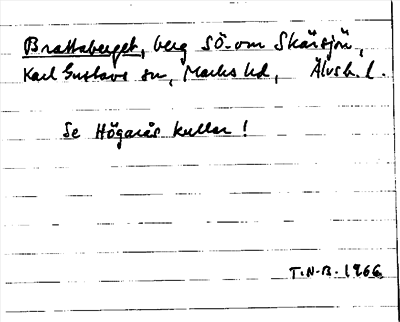 Brattaberget, berg SÖ-om Skärsjön,
Karl Gustavs sn, Marks hd, Älvsb. l.
Se Högarås kullar!
T.N-B. 1966